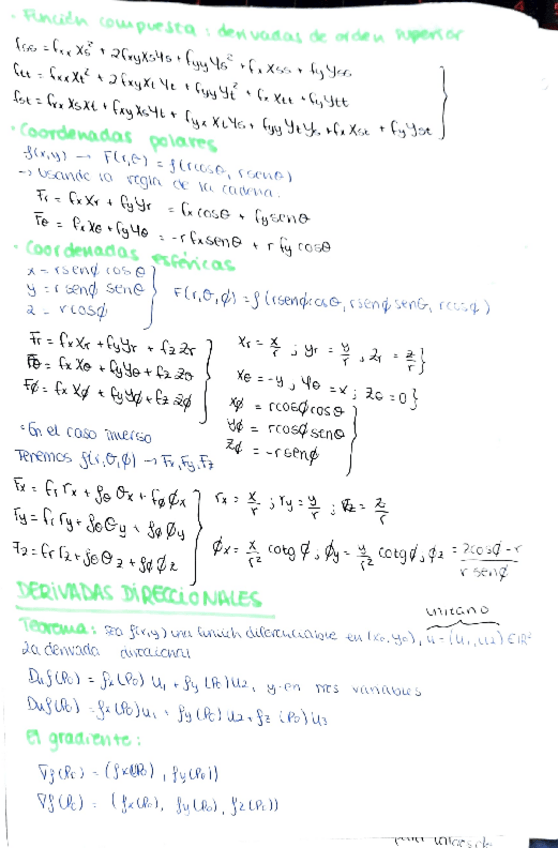 · Función compuesta: derivadas de orden superior
fss = fxx xs² + 2fxy xs ys + fyy ys² + fx xss + fy yss
ftt = fxx xt² + 2fxy xt yt + fyy yt² + fx xtt + fy ytt
fst = fxx xs xt + fxy xs yt + fyx xt ys + fyy yt ys + fx xst + fy yst
· Coordenadas polares
f(x,y) → F(r,θ) = f(rcosθ, rsenθ)
→ Usando la regla de la cadena:
Fr = fx xr + fy yr = fx cosθ + fy senθ
Fθ = fx xθ + fy yθ = -r fx senθ + r fy cosθ
· Coordenadas esféricas
x = rsenϕ cosθ
y = rsenϕ senθ } F(r,θ,ϕ) = f(rsenϕcosθ, rsenϕsenθ, rcosϕ)
z = rcosϕ
Fr = fx xr + fy yr + fz zr
Fθ = fx xθ + fy yθ + fz zθ
Fϕ = fx xϕ + fy yϕ + fz zϕ
xr = x/r ; yr = y/r , zr = z/r }
xθ = -y , yθ = x ; zθ = 0 }
xϕ = rcosϕcosθ
yϕ = rcosϕsenθ
zϕ = -rsenϕ
· En el caso inverso
Tenemos f(r,θ,ϕ) → Fx, Fy, Fz
Fx = fr rx + fθ θx + fϕ ϕx
Fy = fr ry + fθ θy + fϕ ϕy
Fz = fr rz + fθ θz + fϕ ϕz
rx = x/r ; ry = y/r ; rz = z/r
ϕx = x/r² cotgϕ ; ϕy = y/r² cotgϕ , ϕz = zcosϕ - r / r senϕ
DERIVADAS DIRECCIONALES
unitario
Teorema: sea f(x,y) una función diferenciable en (x0, y0), u = (u1, u2) ∈ R²
La derivada direccional
Duf(P0) = fx(P0) u1 + fy(P0) u2, y en tres variables
Duf(P0) = fx(P0) u1 + fy(P0) u2 + fz(P0) u3
El gradiente:
∇f(P0) = (fx(P0), fy(P0))
∇f(P0) = (fx(P0), fy(P0), fz(P0))